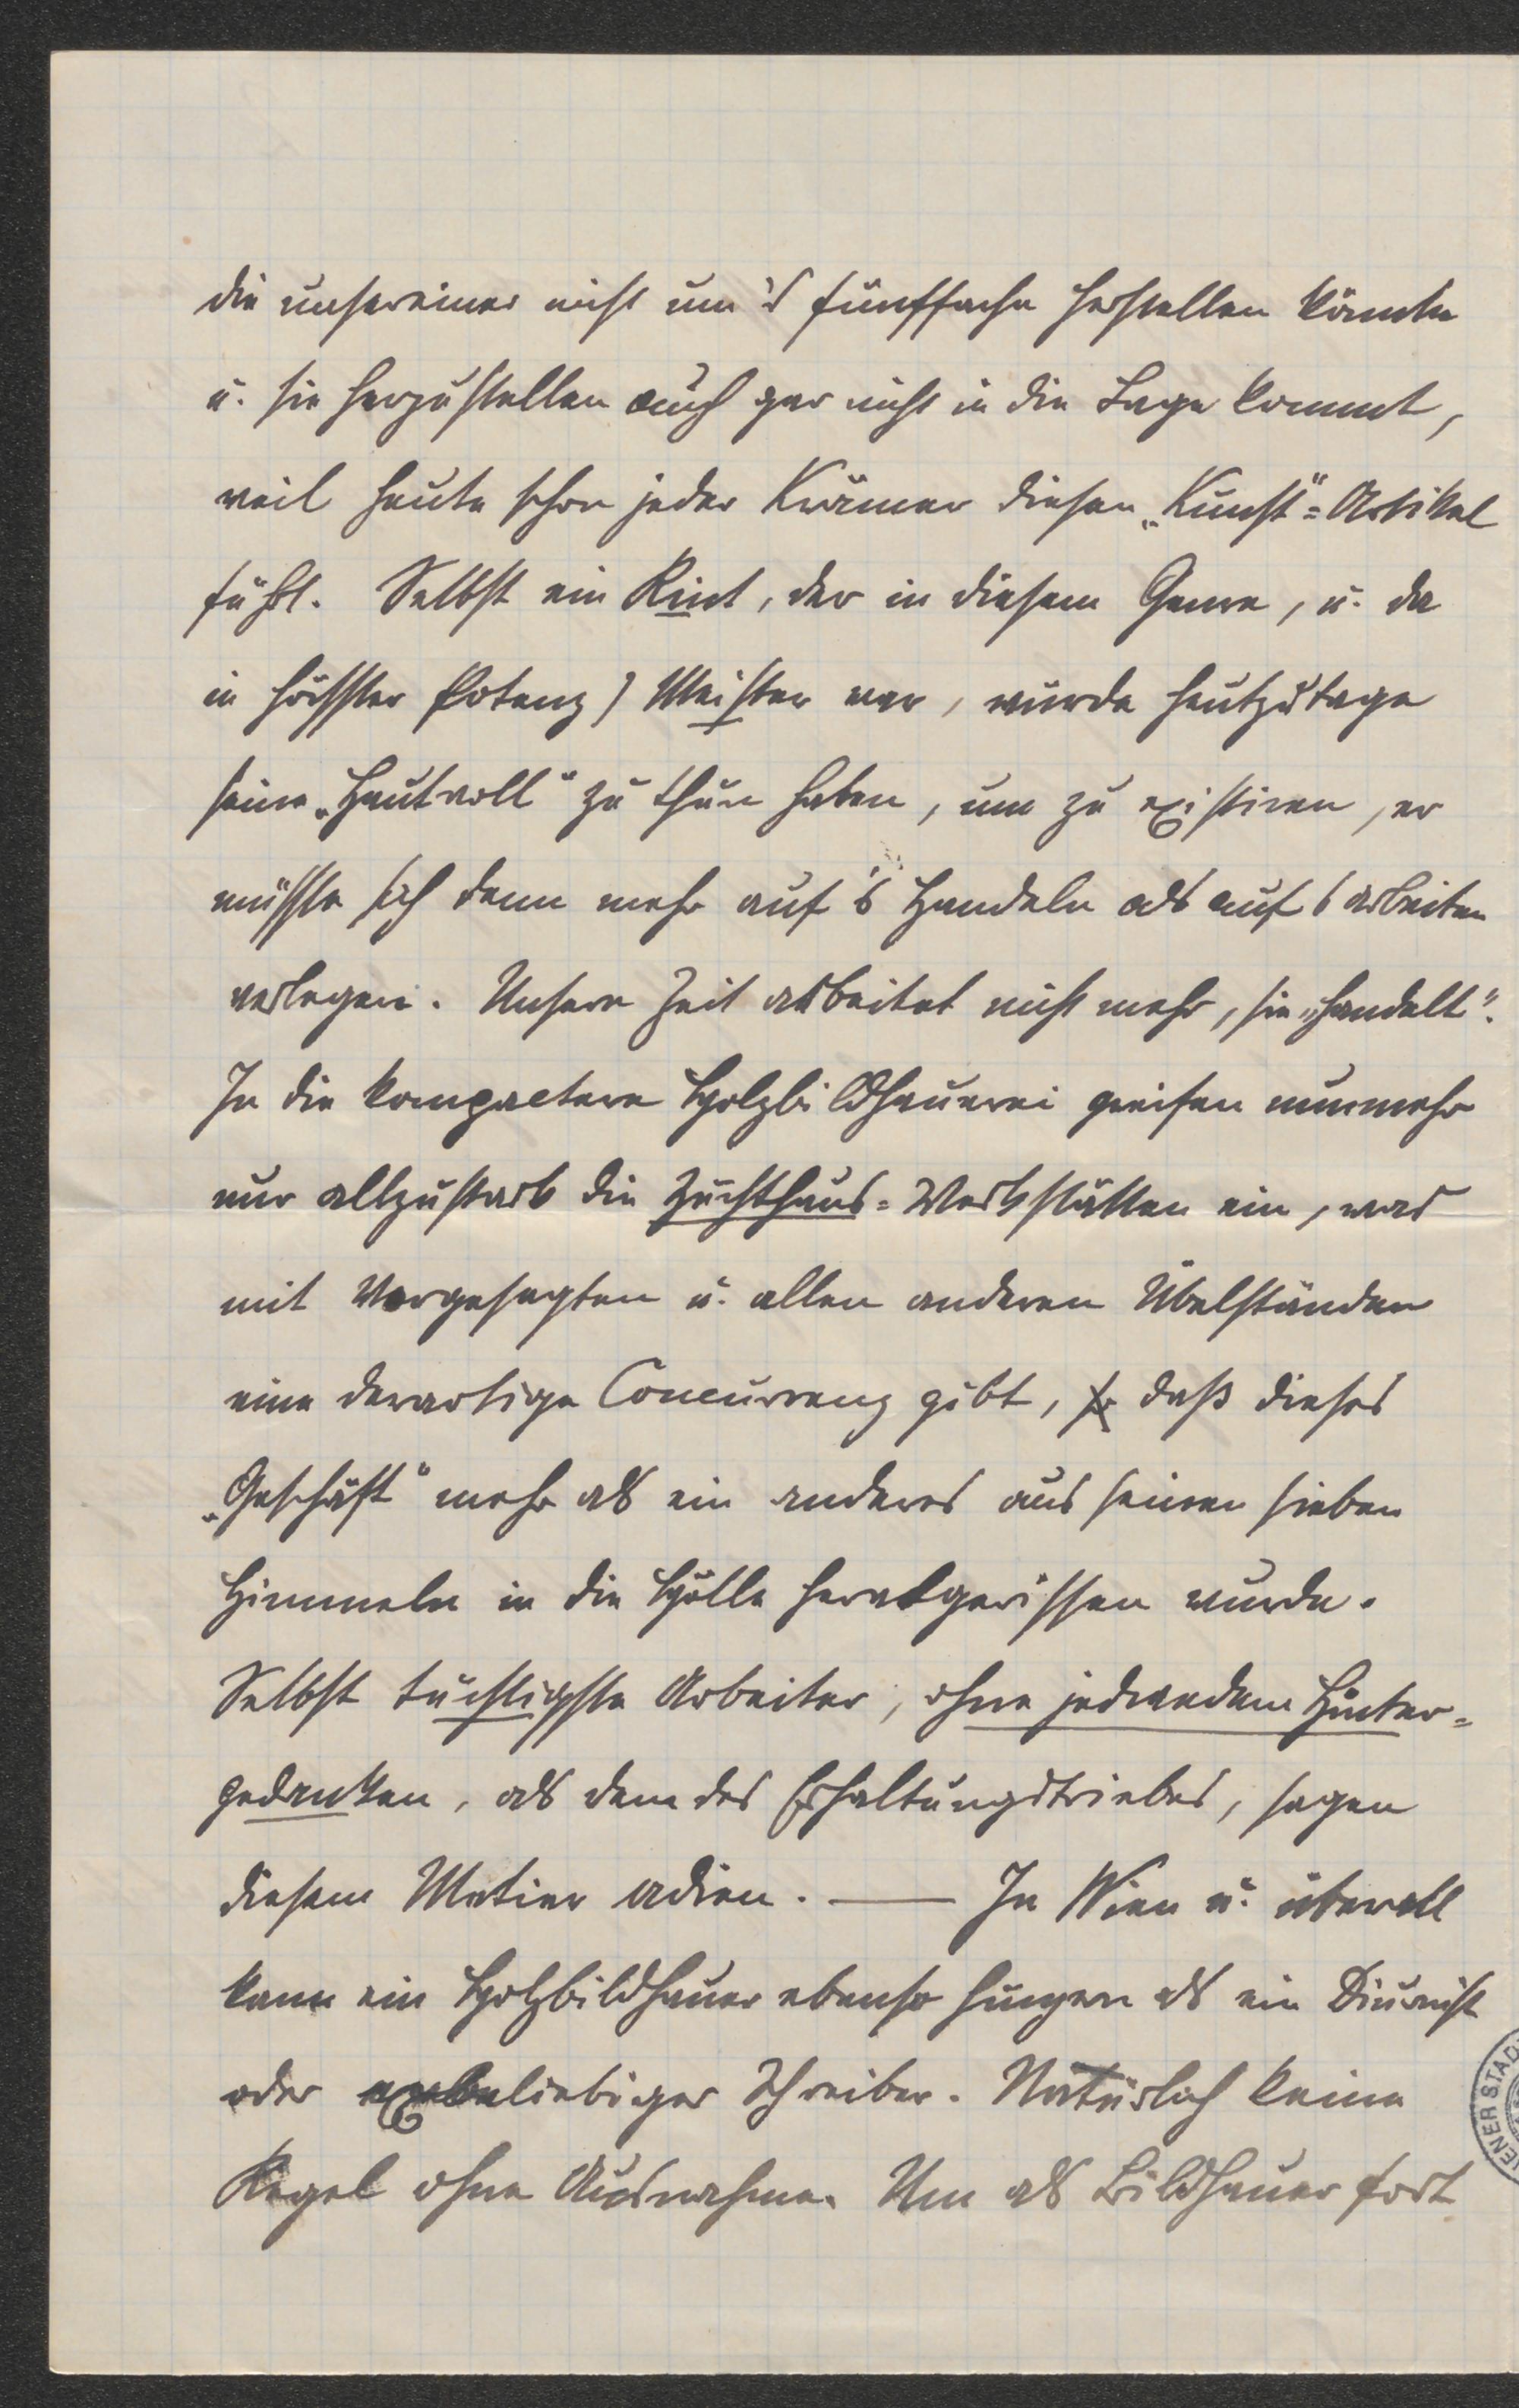 die unsereiner nicht um's fünffache herstellen könnte
u. sie herzustellen auch gar nicht in die Lage kommt,
weil heute schon jeder Krämer diesen „Kunst"=Artikel
führt. Selbst ein Rint, der in diesem Genre, u. da
in höchster Potenz) Meister war, würde heutzutage
seine „Hautvoll" zu thun haben, um zu existiren, er
müsste sich denn mehr auf's Handeln als auf's arbeiten
verlegen. Unsere Zeit arbeitet nicht mehr, sie „handelt".
In die kompactere Holzbildhauerei greifen nunmehr
nur allzustark die Zuchthaus=Werkstätten ein, was
mit Vorgesagten u. allen anderen Übelständen
eine derartige Concurrenz gibt, daß dieses
„Geschäft" mehr als ein anderes aus seinen sieben
Himmeln in die Hölle herabgerissen wurde.
Selbst tüchtigste Arbeiter, ohne jedweden Hinter=
gedanken, als dem des Erhaltungstriebes, sagen
diesem Metier adieu. — In Wien u. überall
kann ein Holzbildhauer ebenso hungern als ein Diurnist
oder beliebiger Schreiber. Natürlich keine
Regel ohne Ausnahme. Um als Bildhauer fort
IENER STAD